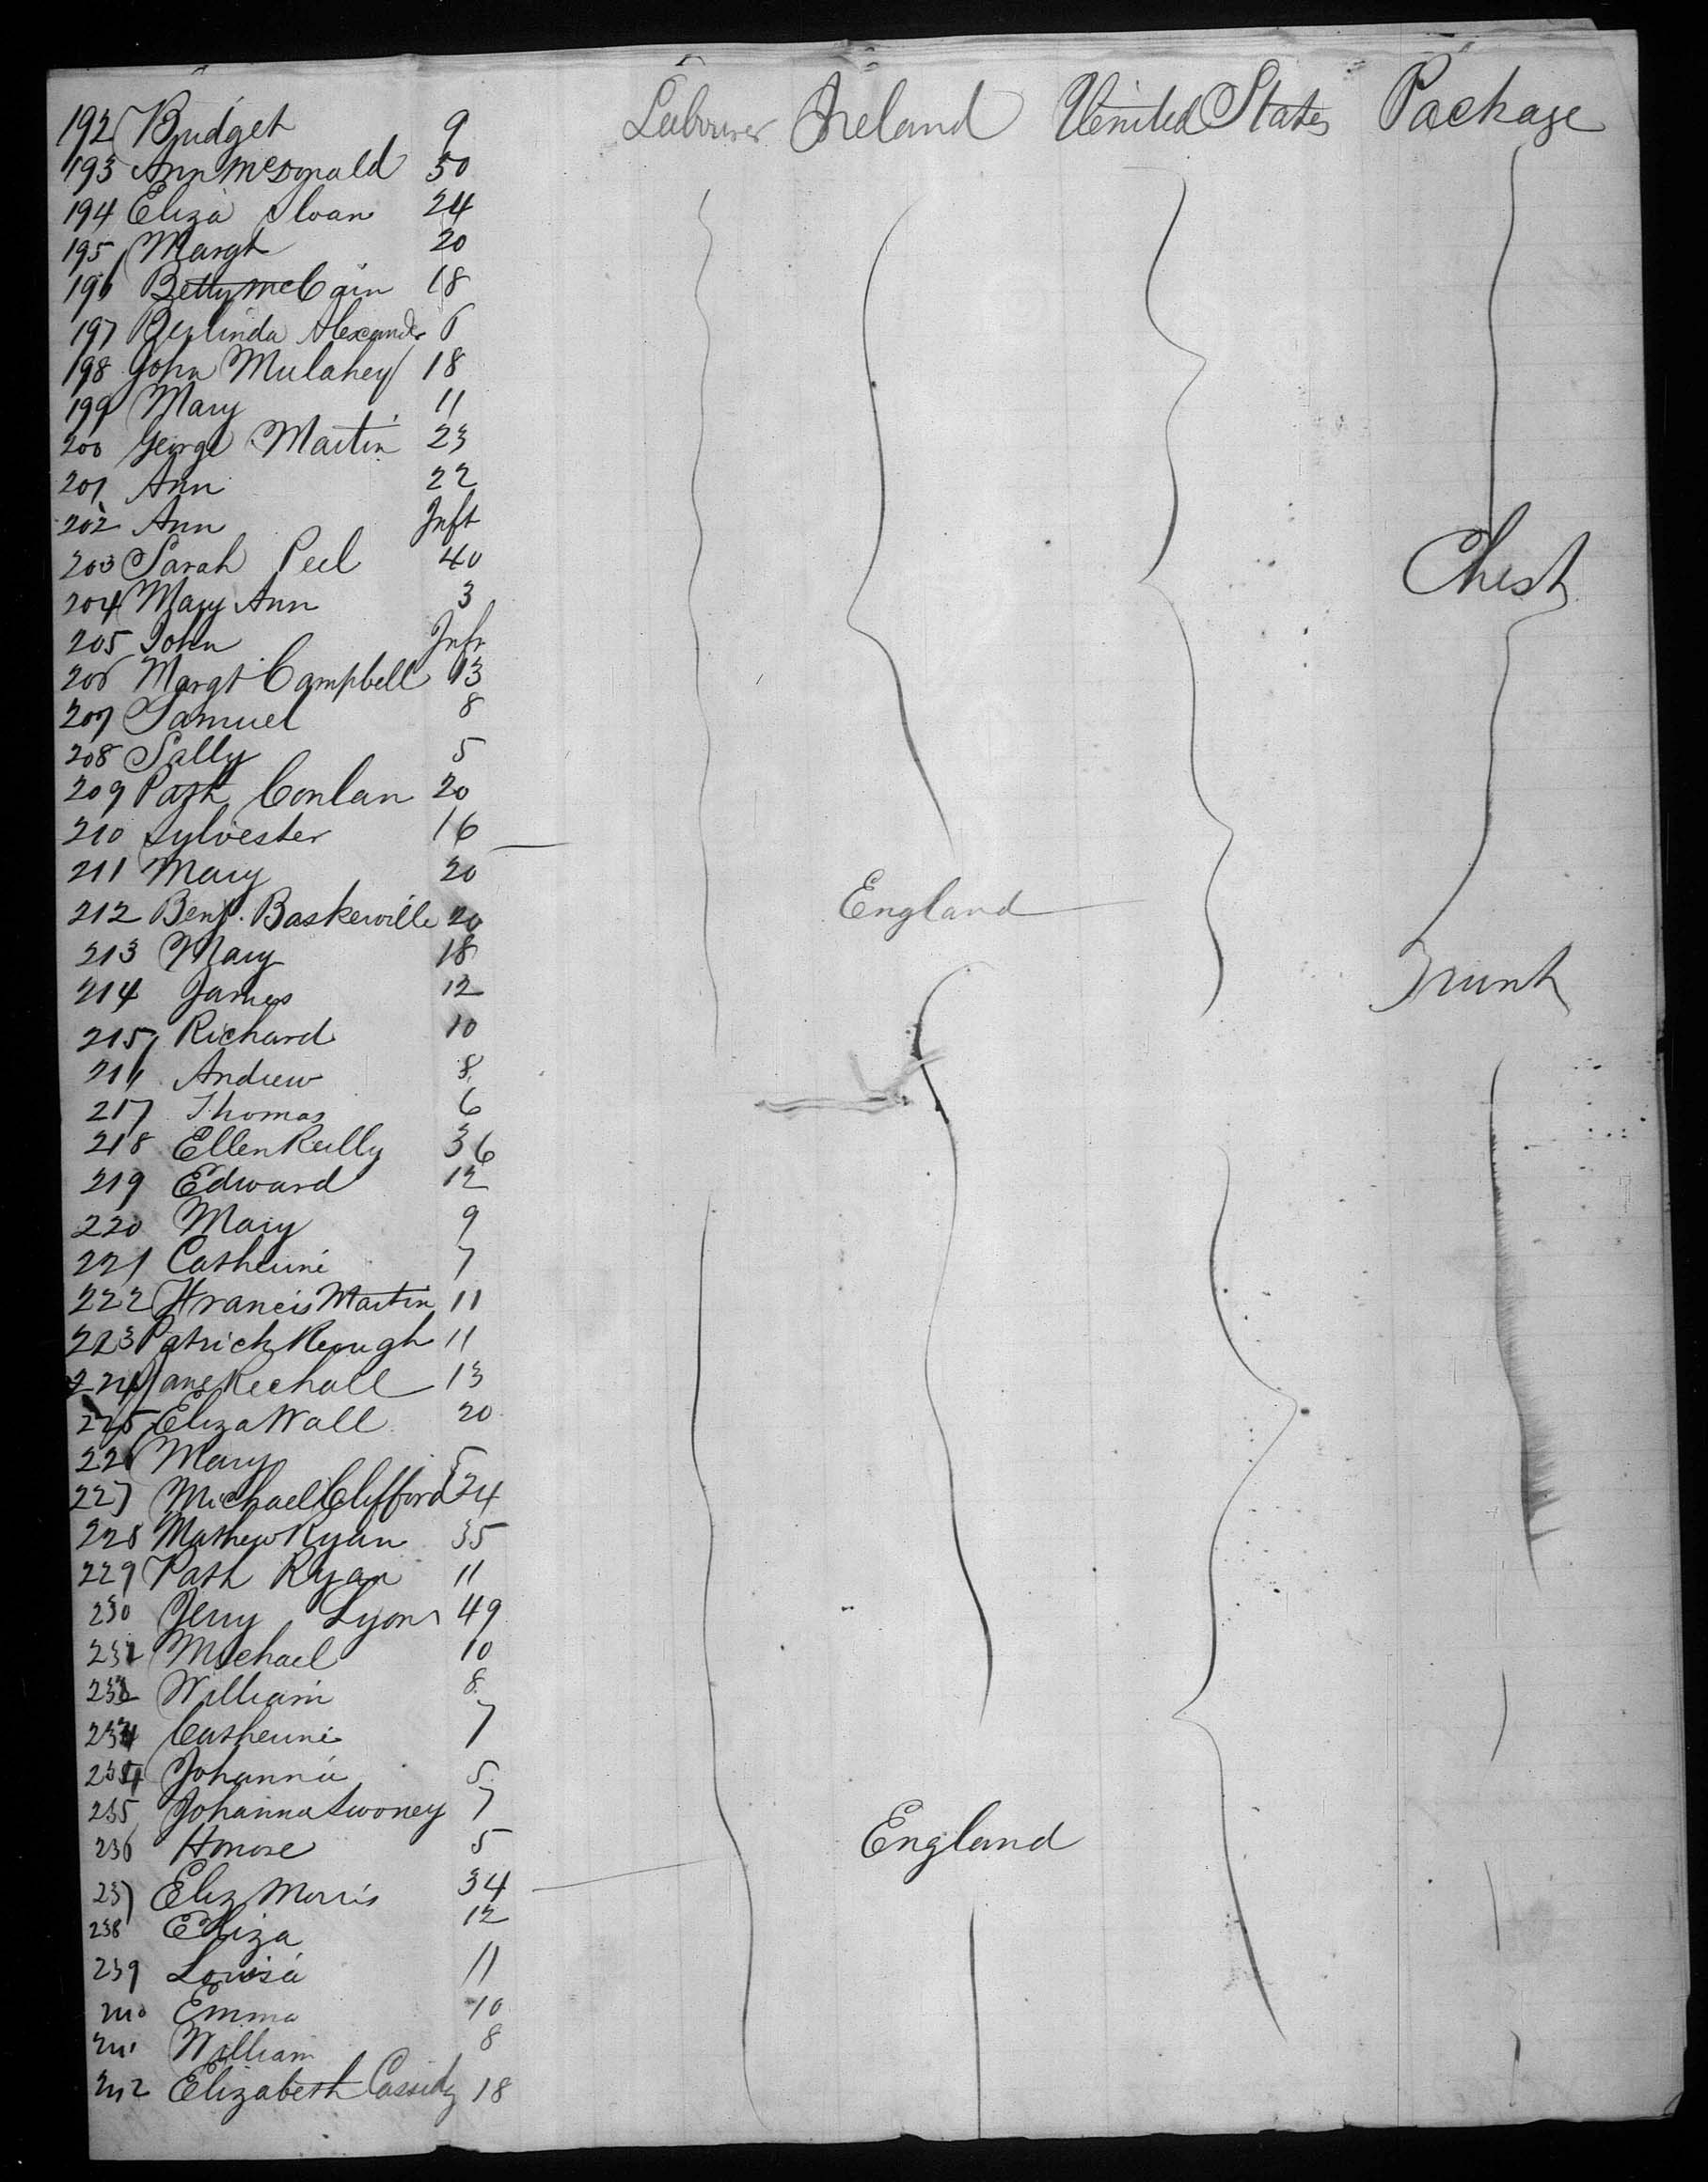 192 Bridget 9 Labourer Ireland United States Package
193 Ann McDonald 50
194 Eliza Sloan 24
195 Margt 20
196 Betty McCain 18
197 Berlinda Alexander 6
198 John Mulahey 18
199 Mary 11
200 George Martin 23
201 Ann 22
202 Ann Inft
203 Sarah Peel 40 Chest
204 Mary Ann 3
205 John Infr
206 Margt Campbell 13
207 Samuel 8
208 Sally 5
209 Patk Conlan 20
210 Sylvester 16
211 Mary 20
212 Benj. Baskerville 20 England
213 Mary 18
214 James 12 Trunk
215 Richard 10
216 Andrew 8
217 Thomas 6
218 Ellen Reilly 36
219 Edward 12
220 Mary 9
221 Catherine 7
222 Francis Martin 11
223 Patrick Keough 11
224 Jane 13
225 Eliza Wall 20
226 Mary 5
227 Michael Clifford 24
228 Mathew Ryan 35
229 Patk Ryan 11
230 Jerry Lyons 49
231 Michael 10
232 William 8
233 Catherine 7
234 Johanna 5
235 Johanna Twoney 7
236 Honore 5 England
237 Eliz Morris 34
238 Eliza 12
239 Louisa 11
240 Emma 10
241 William 8
242 Elizabeth Cassidy 18